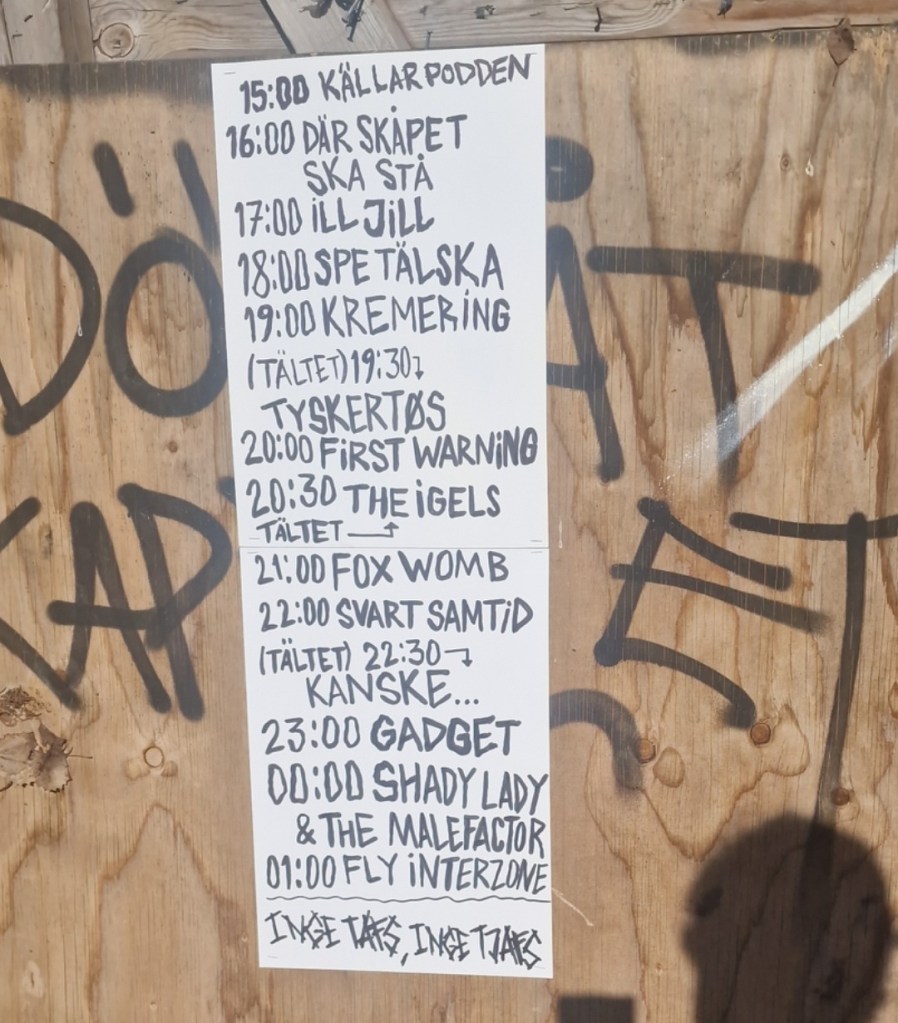 15:00 KÄLLARPODDEN
16:00 DÄR SKÅPET
SKA STÅ
17:00 iLL JiLL
18:00 SPETÄLSKA
19:00 KREMERiNG
(TÄLTET) 19:30
TYSKERTØS
20:00 FiRST WARNiNG
20:30 THE iGELS
TÄLTET
21:00 FOX WOMB
22:00 SVART SAMTiD
(TÄLTET) 22:30
KANSKE...
23:00 GADGET
00:00 SHADY LADY
& THE MALEFACTOR
01:00 FLY iNTERZONE
INGE TAFS, INGE TJAFS
ET